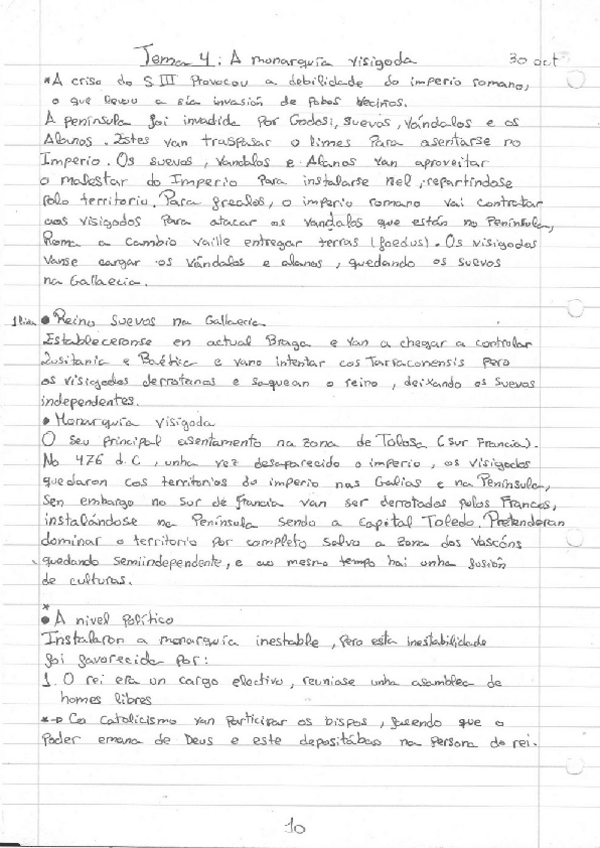 Tema 4: A monarquía visigoda 30 oct
*A crise do S.III Provocou a debilidade do imperio romano,
o que levou a súa invasión de Pobos Veciños.
A península foi invadida Por Godos, suevos, vándalos e os
Alanos. Estes van traspasar o limes Para asentarse no
Imperio. Os suevos, vandalos e Alanos van aproveitar
o malestar do Imperio Para instalarse nel, repartíndose
polo territorio. Para frealos, o imperio romano vai contratar
aos visigodos Para atacar os vandalos que están na Península,
Roma a cambio vaille entregar terras (foedus). Os visigodos
vanse cargar os vándalos e alanos, quedando os suevos
na Gallaecia.
• Reino Suevos na Gallaecia
Estableceronse en actual Braga e van a chegar a controlar
Lusitania e Baética e vano intentar cos Tarraconensis pero
os visigodos derrotanos e saquean o reino, deixando os Suevos
independentes.
• Monarquía visigoda
O seu principal asentamento na zona de Tolosa (sur Francia).
No 476 d.C, unha vez desaparecido o imperio, os visigodos
quedaron cos territorios do imperio nas Galias e na Península,
Sen embargo no sur de francia van ser derrotados polos Francos,
instalándose na Península sendo a capital Toledo. Pretenderan
dominar o territorio por completo salvo a zona dos Vascóns
quedando semiindependente, e ao mesmo tempo hai unha fusión
de culturas.
*
• A nivel Político
Instalaron a monarquía inestable, Pero esta inestabilidade
foi favorecida por:
1. O rei era un cargo electivo, reuniase unha asamblea de
homes libres
*-> Co Catolicismo van Participar os bispos, facendo que o
Poder emana de Deus e este depositábao na persona do rei.
10